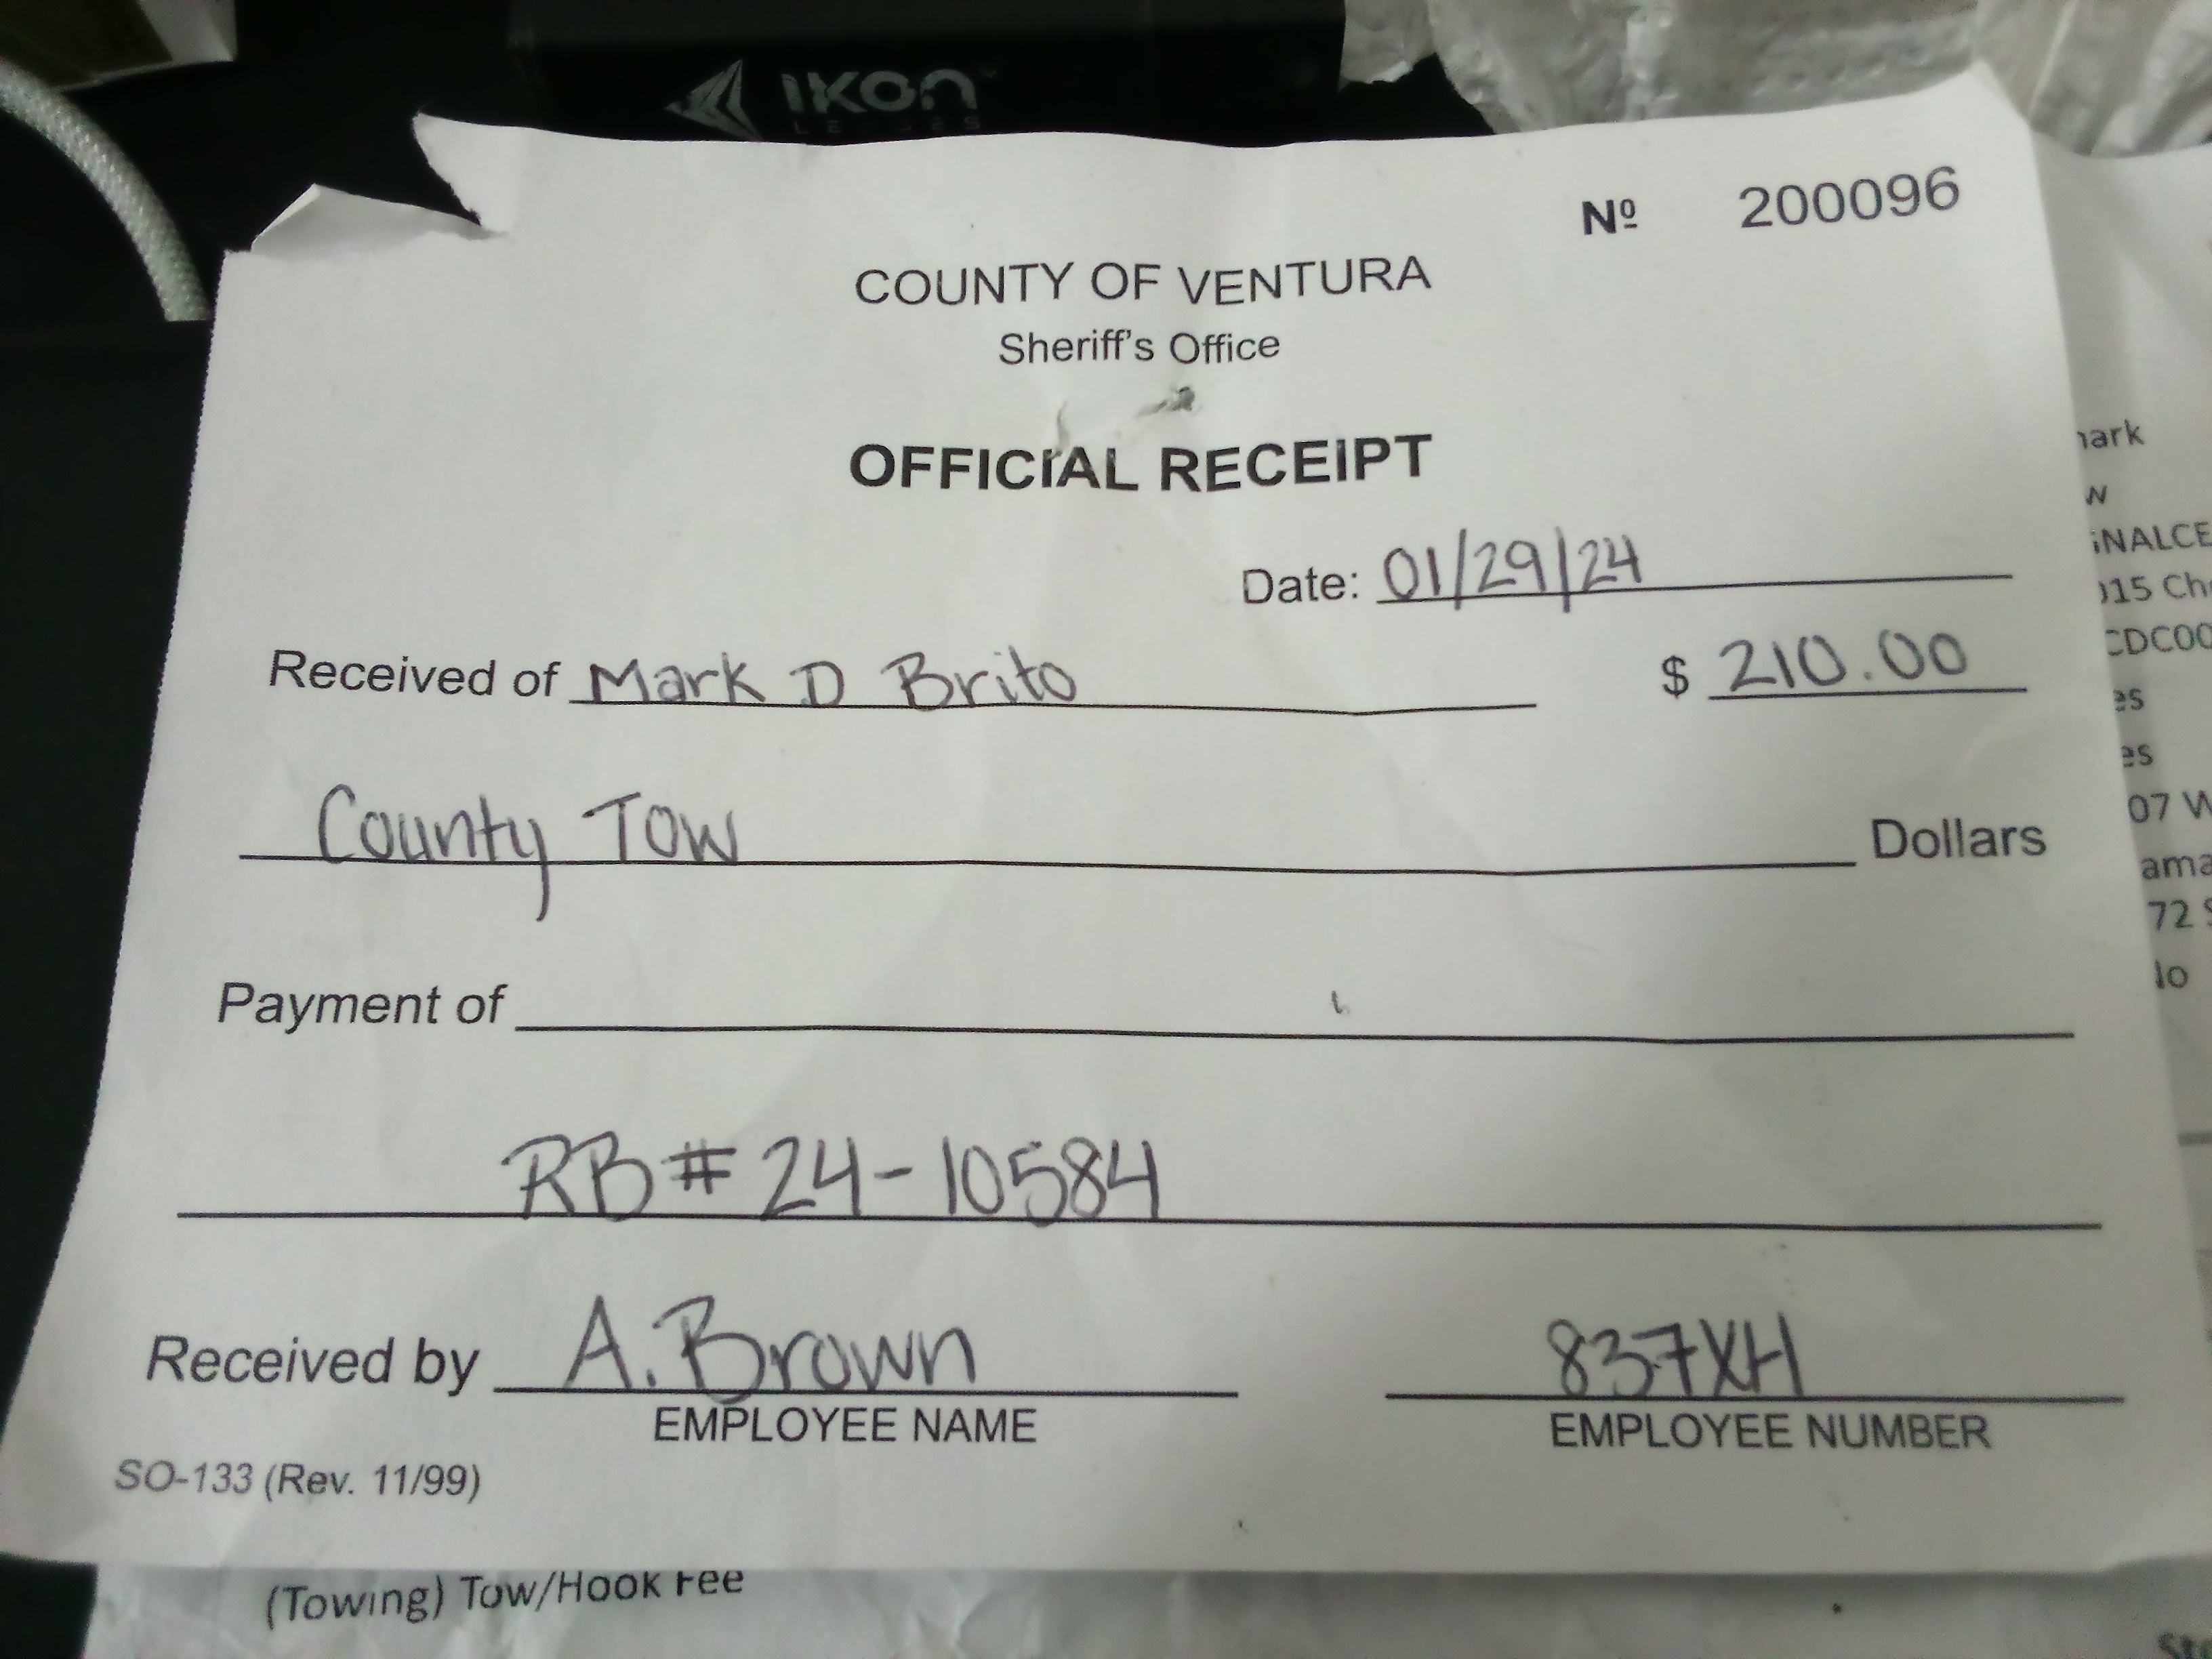 IKON
Nº 200096
COUNTY OF VENTURA
Sheriff's Office
OFFICIAL RECEIPT
Date: 01/29/24
Received of Mark D Brito $ 210.00
County Tow Dollars
Payment of
RB# 24-10584
Received by A. Brown 837XH
EMPLOYEE NAME EMPLOYEE NUMBER
SO-133 (Rev. 11/99)
(Towing) Tow/Hook Fee
ark
w
NALCE
15 Ch
CDC00
es
es
07 W
ama
72 S
lo